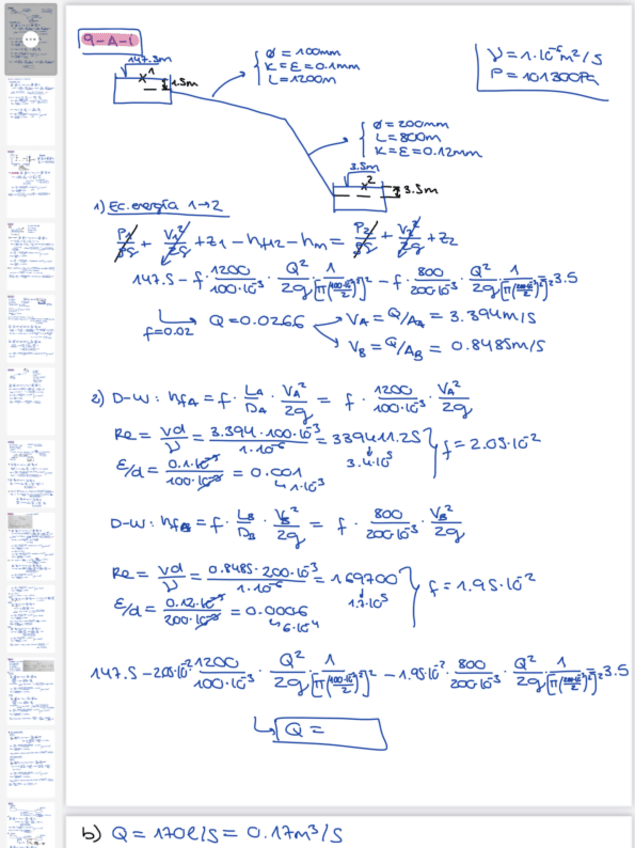 9-A-1
147.5m
1
1.5m
{ ø = 100mm
K = Ɛ = 0.1mm
L = 1200m
ν = 1·10⁻⁶ m²/s
P = 101300Pa
{ ø = 200mm
L = 800m
K = Ɛ = 0.12mm
3.5m
2
3.5m
1) Ec. energía 1→2
P1/ρg + V1²/2g + z1 - hf12 - hm = P2/ρg + V2²/2g + z2
147.5 - f · 1200/100·10⁻³ · Q²/2g · 1/[π(100·10⁻³/2)²]² - f · 800/200·10⁻³ · Q²/2g · 1/[π(200·10⁻³/2)²]² = 3.5
f=0.02 → Q = 0.0266 → VA = Q/AA = 3.394m/s
VB = Q/AB = 0.8485m/s
2) D-W: hfA = f · LA/DA · VA²/2g = f · 1200/100·10⁻³ · VA²/2g
Re = vd/ν = 3.394·100·10⁻³/1·10⁻⁶ = 339411.25
3.4·10⁵
} f = 2.05·10⁻²
Ɛ/d = 0.1·10⁻³/100·10⁻³ = 0.001
↳ 1·10⁻³
D-W: hfB = f · LB/DB · VB²/2g = f · 800/200·10⁻³ · VB²/2g
Re = vd/ν = 0.8485·200·10⁻³/1·10⁻⁶ = 169700
1.7·10⁵
} f = 1.95·10⁻²
Ɛ/d = 0.12·10⁻³/200·10⁻³ = 0.0006
↳ 6·10⁻⁴
147.5 - 2.05·10⁻² · 1200/100·10⁻³ · Q²/2g · 1/[π(100·10⁻³/2)²]² - 1.95·10⁻² · 800/200·10⁻³ · Q²/2g · 1/[π(200·10⁻³/2)²]² = 3.5
↳ Q =
b) Q = 170l/s = 0.17m³/s